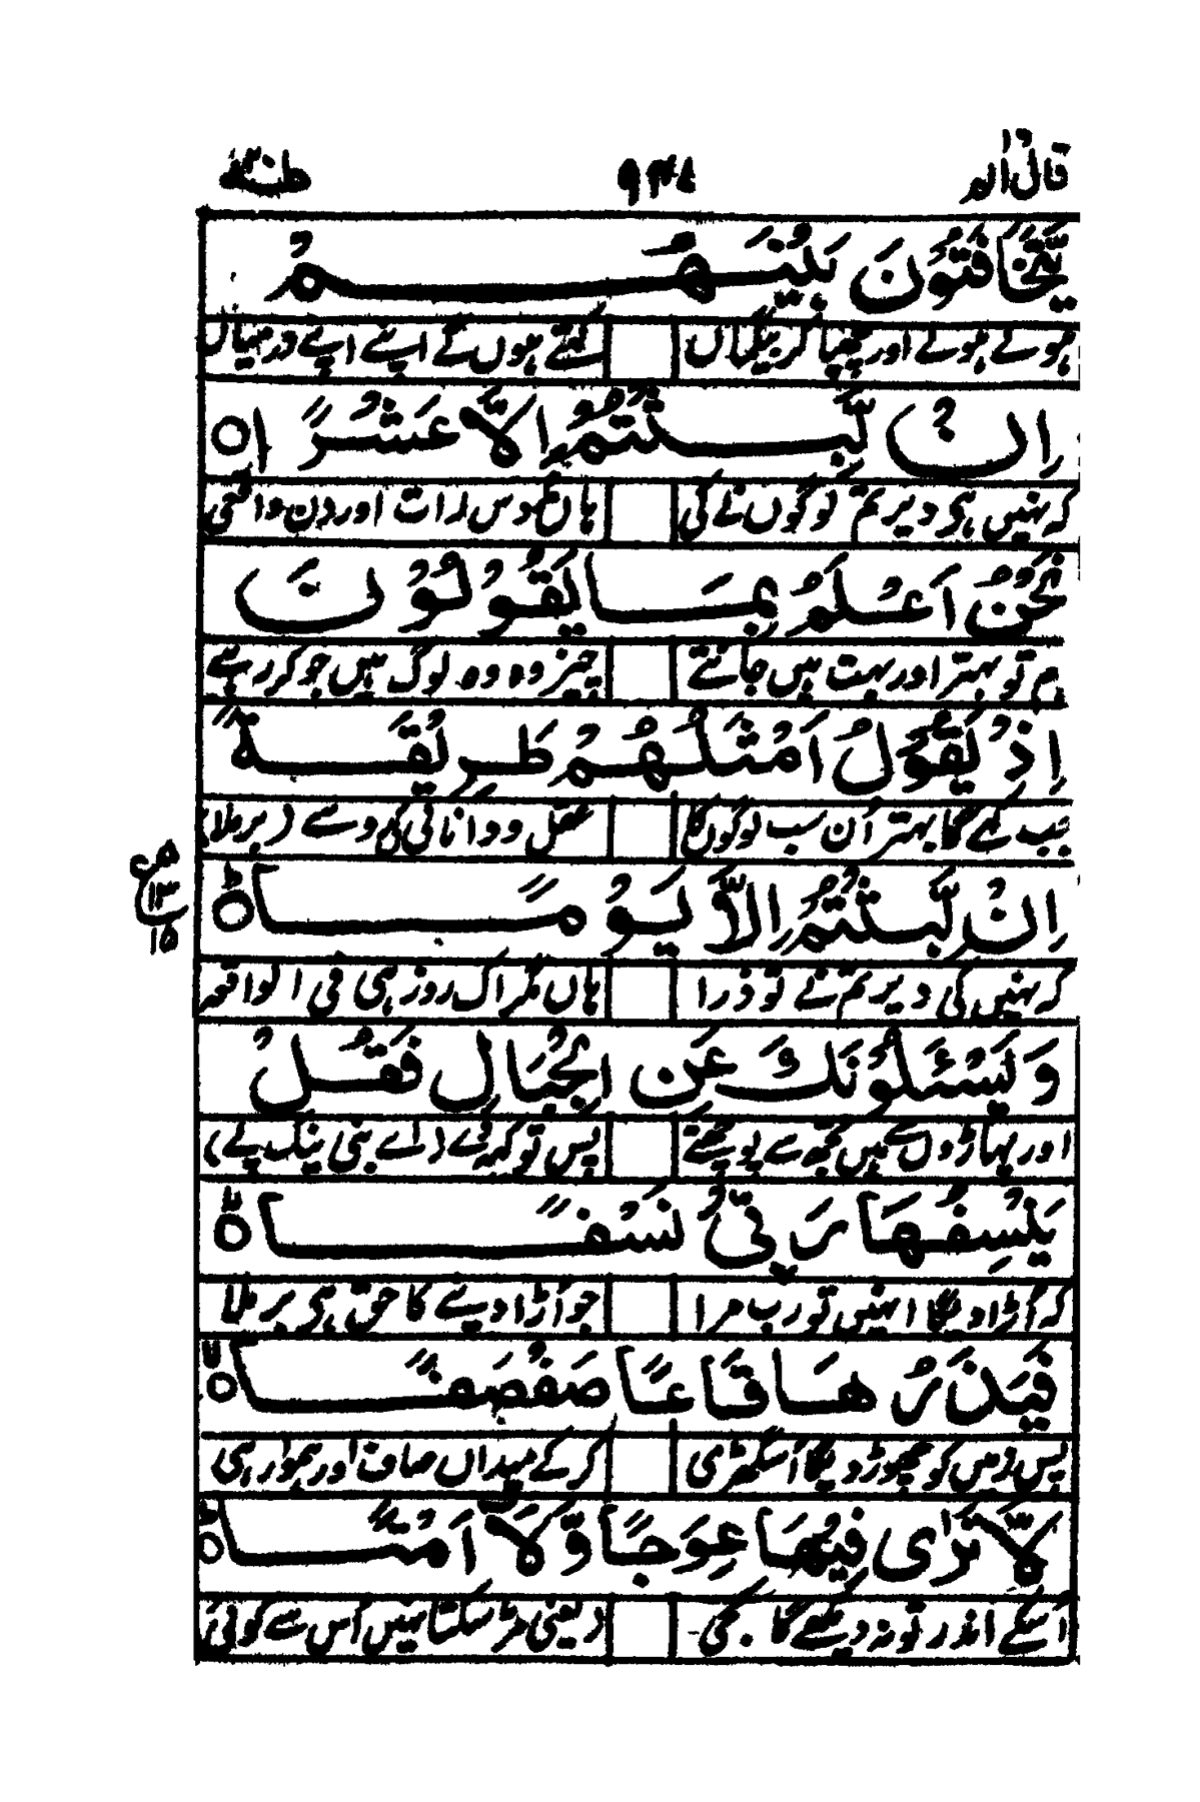 قال الم ۹۴۸ طٰهٰ ۲۰
يَّتَخَافَتُوْنَ بَيْنَهُمْ
ہولے ہولے اور چھپا کر بیگماں کہتے ہوں گے اپنے اپنے درمیاں
اِنْ لَّبِثْتُمْ اِلَّا عَشْرًا
کہ نہیں ہی دیر تم لوگوں نے کی ہاں مگر دس رات اور دن واقعی
نَحْنُ اَعْلَمُ بِمَا يَقُوْلُوْنَ
ہم تو بہتر اور بہت ہیں جانتے چیز وہ وہ لوگ ہیں جو کر رہے
اِذْ يَقُوْلُ اَمْثَلُهُمْ طَرِيْقَةً
جب کہے گا بہتر اُن سب لوگوں کا عقل و دانائی کی رو سے (برملا)
اِنْ لَّبِثْتُمْ اِلَّا يَوْمًا
ع ۱۳ ۱۵
کہ نہیں کی دیر تم نے تو ذرا ہاں مگر اک روز ہی فی الواقعہ
وَيَسْـَٔلُوْنَكَ عَنِ الْجِبَالِ فَقُلْ
اور پہاڑوں سے ہیں تجھ سے پوچھتے پس تو کہہ دے (اے نبی نیک پے)
يَنْسِفُهَا رَبِّيْ نَسْفًا
کہ اُڑا دیگا انہیں تو رب مرا جو اُڑا دینے کا حق ہی برملا
فَيَذَرُهَا قَاعًا صَفْصَفًا
پس زمیں کو چھوڑ دیگا اس گھڑی کر کے میداں صاف اور ہموار ہی
لَّا تَرٰى فِيْهَا عِوَجًا وَّلَآ اَمْتًا
اُسکے اندر تو نہ دیکھے گا کجی (یعنی مڑ سکتا نہیں اُس سے کوئی)